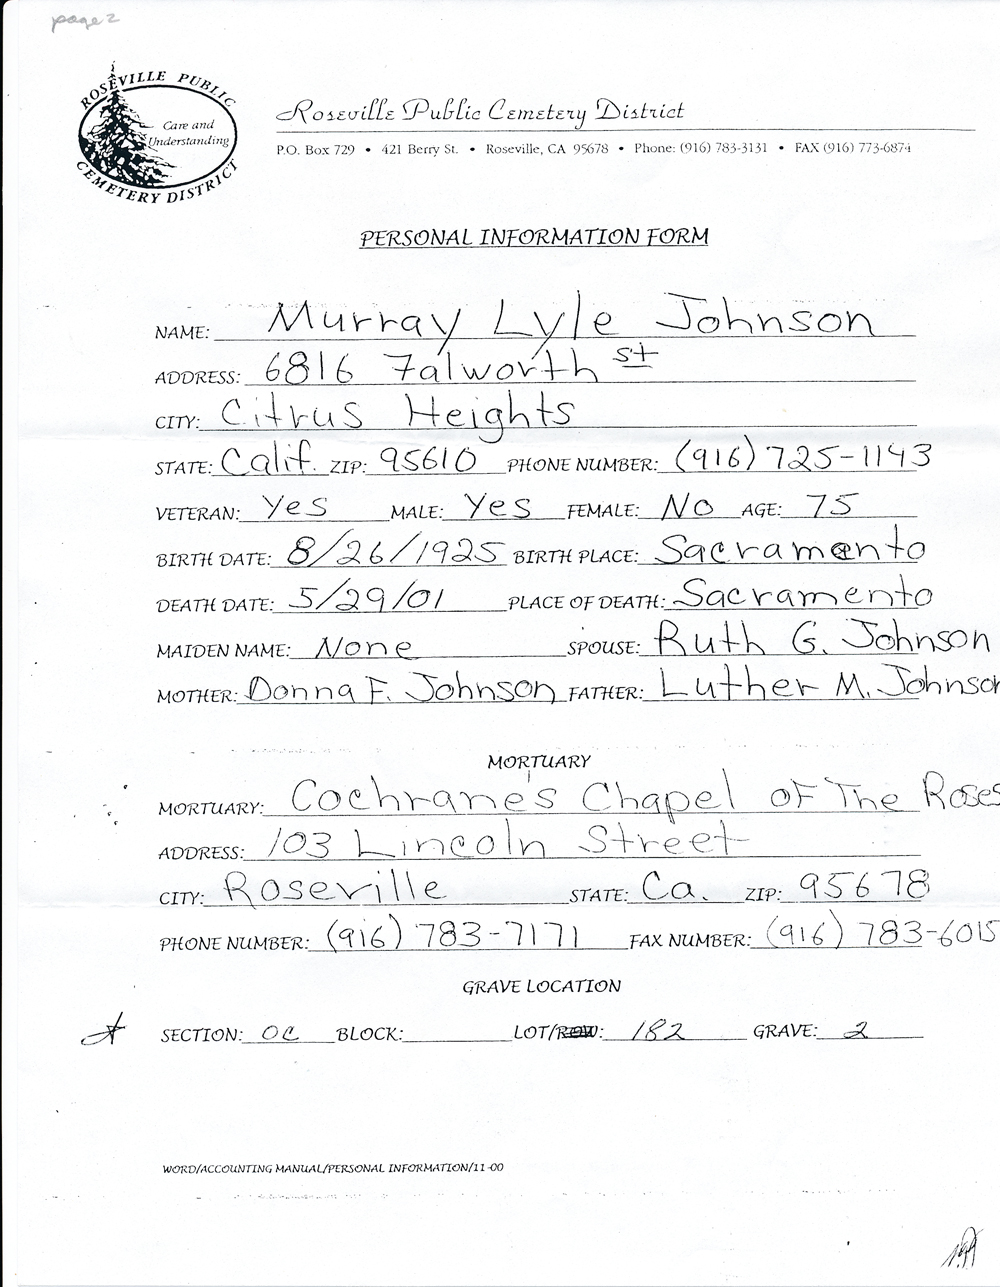 page 2
ROSEVILLE PUBLIC
Care and
Understanding
CEMETERY DISTRICT
Roseville Public Cemetery District
P.O. Box 729 • 421 Berry St. • Roseville, CA 95678 • Phone: (916) 783-3131 • FAX (916) 773-6874
PERSONAL INFORMATION FORM
NAME: Murray Lyle Johnson
ADDRESS: 6816 Falworth st
CITY: Citrus Heights
STATE: Calif. ZIP: 95610 PHONE NUMBER: (916) 725-1143
VETERAN: Yes MALE: Yes FEMALE: No AGE: 75
BIRTH DATE: 8/26/1925 BIRTH PLACE: Sacramento
DEATH DATE: 5/29/01 PLACE OF DEATH: Sacramento
MAIDEN NAME: None SPOUSE: Ruth G. Johnson
MOTHER: Donna F. Johnson FATHER: Luther M. Johnson
MORTUARY
MORTUARY: Cochrane's Chapel of The Roses
ADDRESS: 103 Lincoln Street
CITY: Roseville STATE: Ca. ZIP: 95678
PHONE NUMBER: (916) 783-7171 FAX NUMBER: (916) 783-6015
GRAVE LOCATION
SECTION: OC BLOCK: LOT/ROW: 182 GRAVE: 2
WORD/ACCOUNTING MANUAL/PERSONAL INFORMATION/11-00